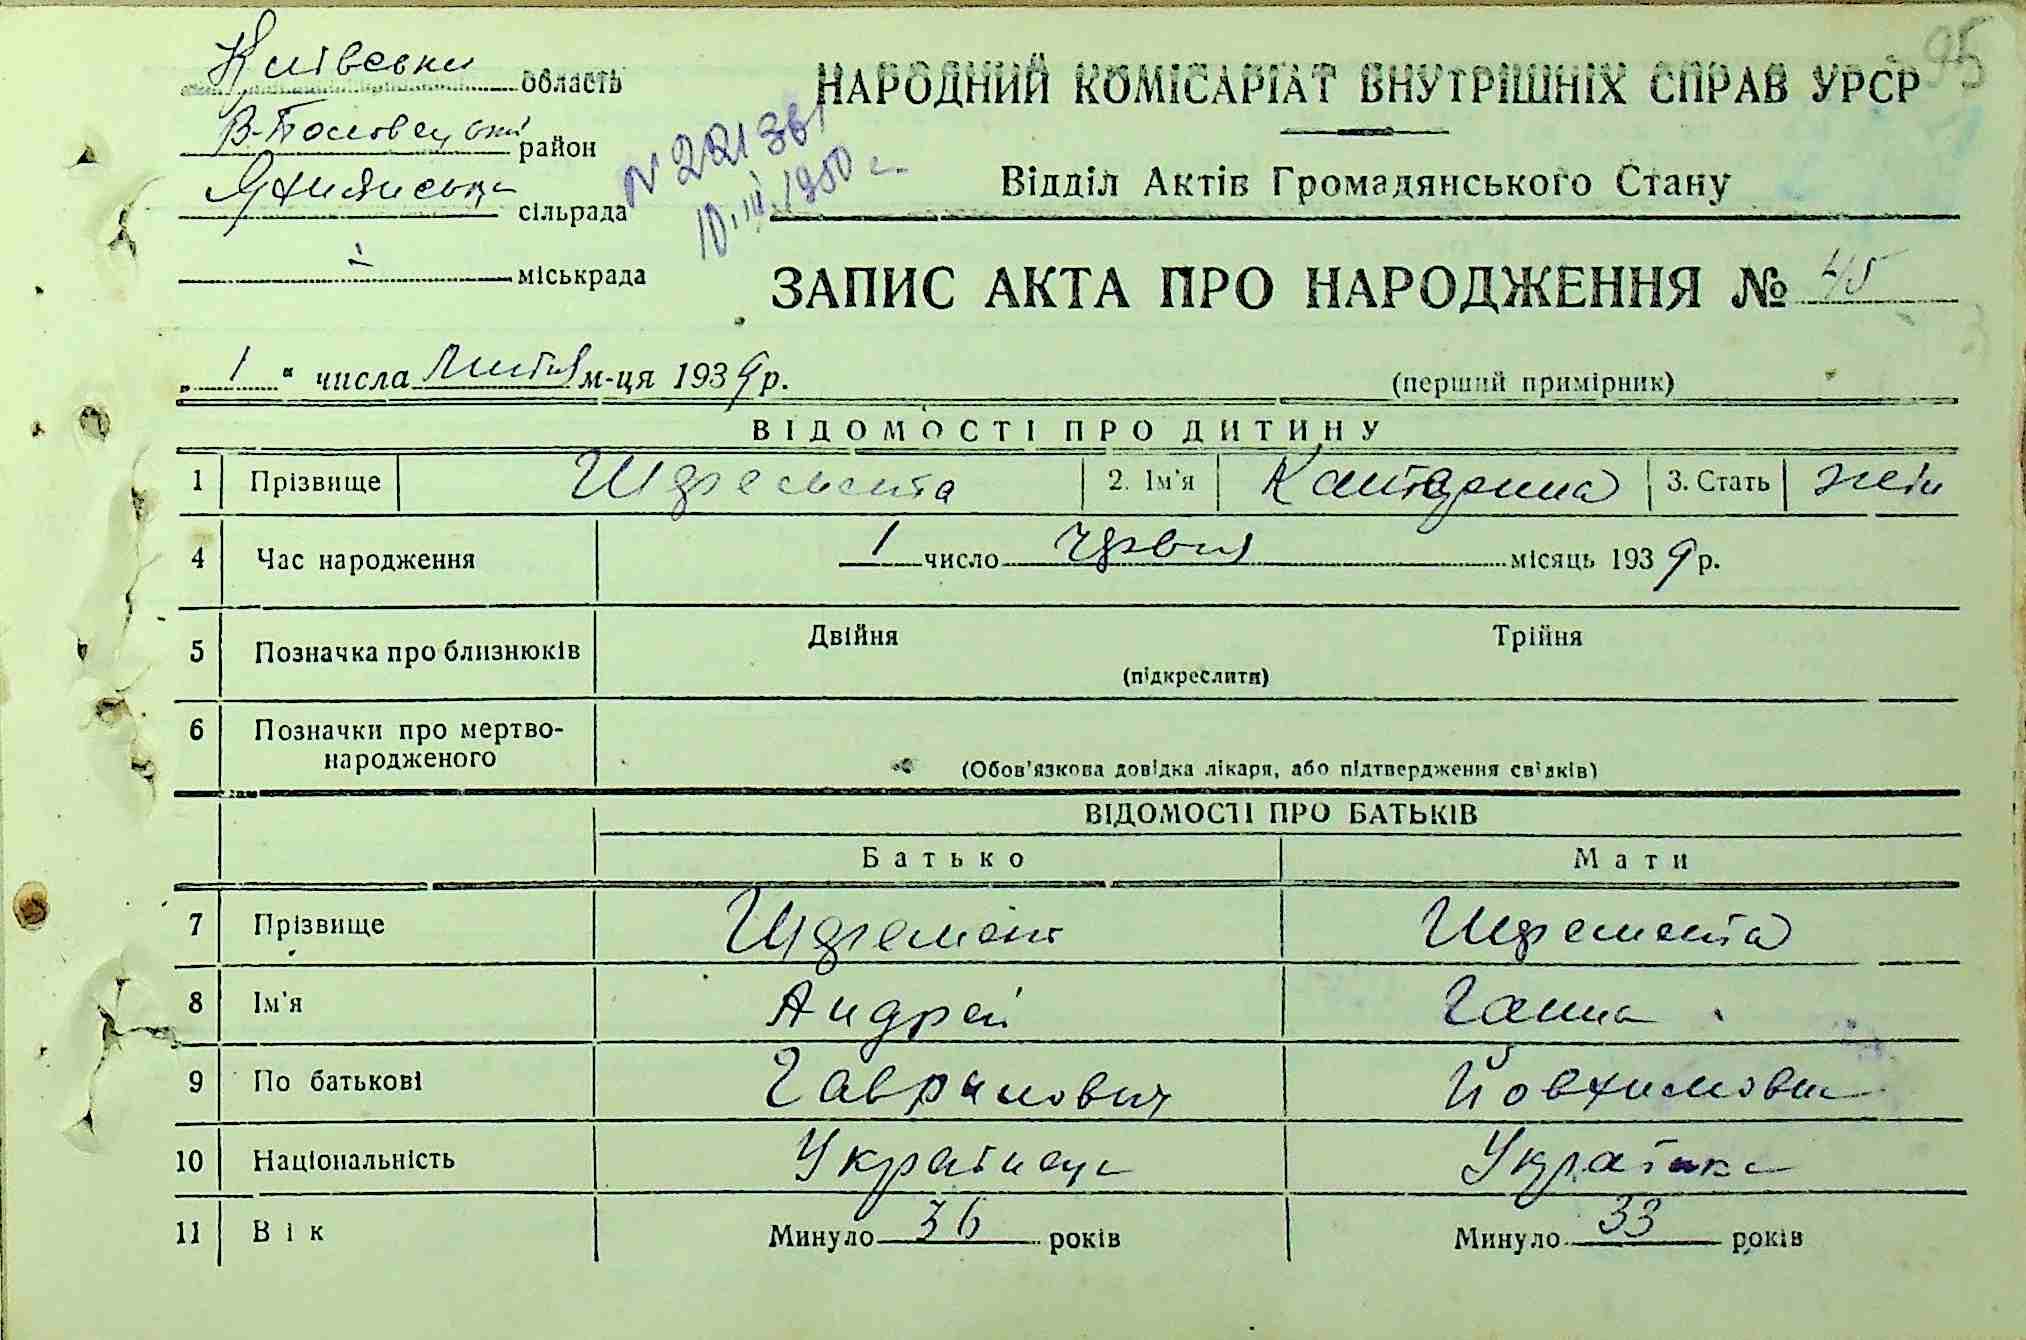 95
Київська область
В-Половецький район
Яхнянська сільрада
- міськрада
N 221361
10.III.1950 г.
НАРОДНИЙ КОМІСАРІАТ ВНУТРІШНІХ СПРАВ УРСР
Відділ Актів Громадянського Стану
ЗАПИС АКТА ПРО НАРОДЖЕННЯ № 45
„ 1 “ числа Липня м-ця 1939 р.
(перший примірник)
ВІДОМОСТІ ПРО ДИТИНУ
1 Прізвище Шдремента 2. Ім'я Катерина 3. Стать жін
4 Час народження 1 число червня місяць 1939 р.
5 Позначка про близнюків Двійня Трійня
(підкреслити)
6 Позначки про мертво-
народженого
(Обов'язкова довідка лікаря, або підтвердження свідків)
ВІДОМОСТІ ПРО БАТЬКІВ
Батько Мати
7 Прізвище
8 Ім'я Андрей Ганна
9 По батькові Гаврилович Йовхимовна
10 Національність Українець Українка
11 Вік Минуло 36 років Минуло 33 років